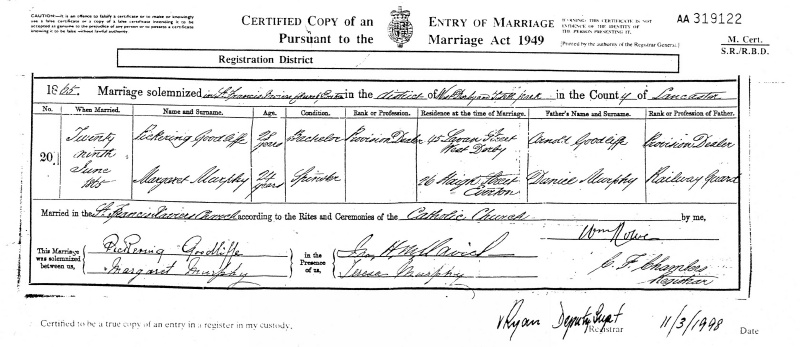 CAUTION:— It is an offence to falsify a certificate or to make or knowingly
use a false certificate or a copy of a false certificate intending it to be
accepted as genuine to the prejudice of any person or to possess a certificate
knowing it to be false without lawful authority
CERTIFIED COPY of an
Pursuant to the
ENTRY OF MARRIAGE
Marriage Act 1949
WARNING: THIS CERTIFICATE IS NOT
EVIDENCE OF THE IDENTITY OF
THE PERSON PRESENTING IT.
[Printed by the authority of the Registrar General]
AA 319122
M. Cert.
S.R./R.B.D.
Registration District
1865. Marriage solemnized in St Francis Xavier Church in the district of West Derby in the County of Lancaster
No. When Married. Name and Surname. Age. Condition. Rank or Profession. Residence at the time of Marriage. Father's Name and Surname. Rank or Profession of Father.
20 Twenty ninth June 1865
Pickering Goodliffe 28 years Bachelor Provision Dealer 45 Street West Derby Goodliffe Provision Dealer
Margaret Murphy 24 years Spinster 26 Haigh Street Everton Daniel Murphy Railway Guard
Married in the St Francis Xaviers Church according to the Rites and Ceremonies of the Catholic Church by me,
Wm Rowe
This Marriage was solemnized between us,
Pickering Goodliffe
Margaret Murphy
in the Presence of us,
Teresa Murphy
C. F. Chambers
Registrar
Certified to be a true copy of an entry in a register in my custody,
VRyan Deputy Supt Registrar 11/3/1998 Date